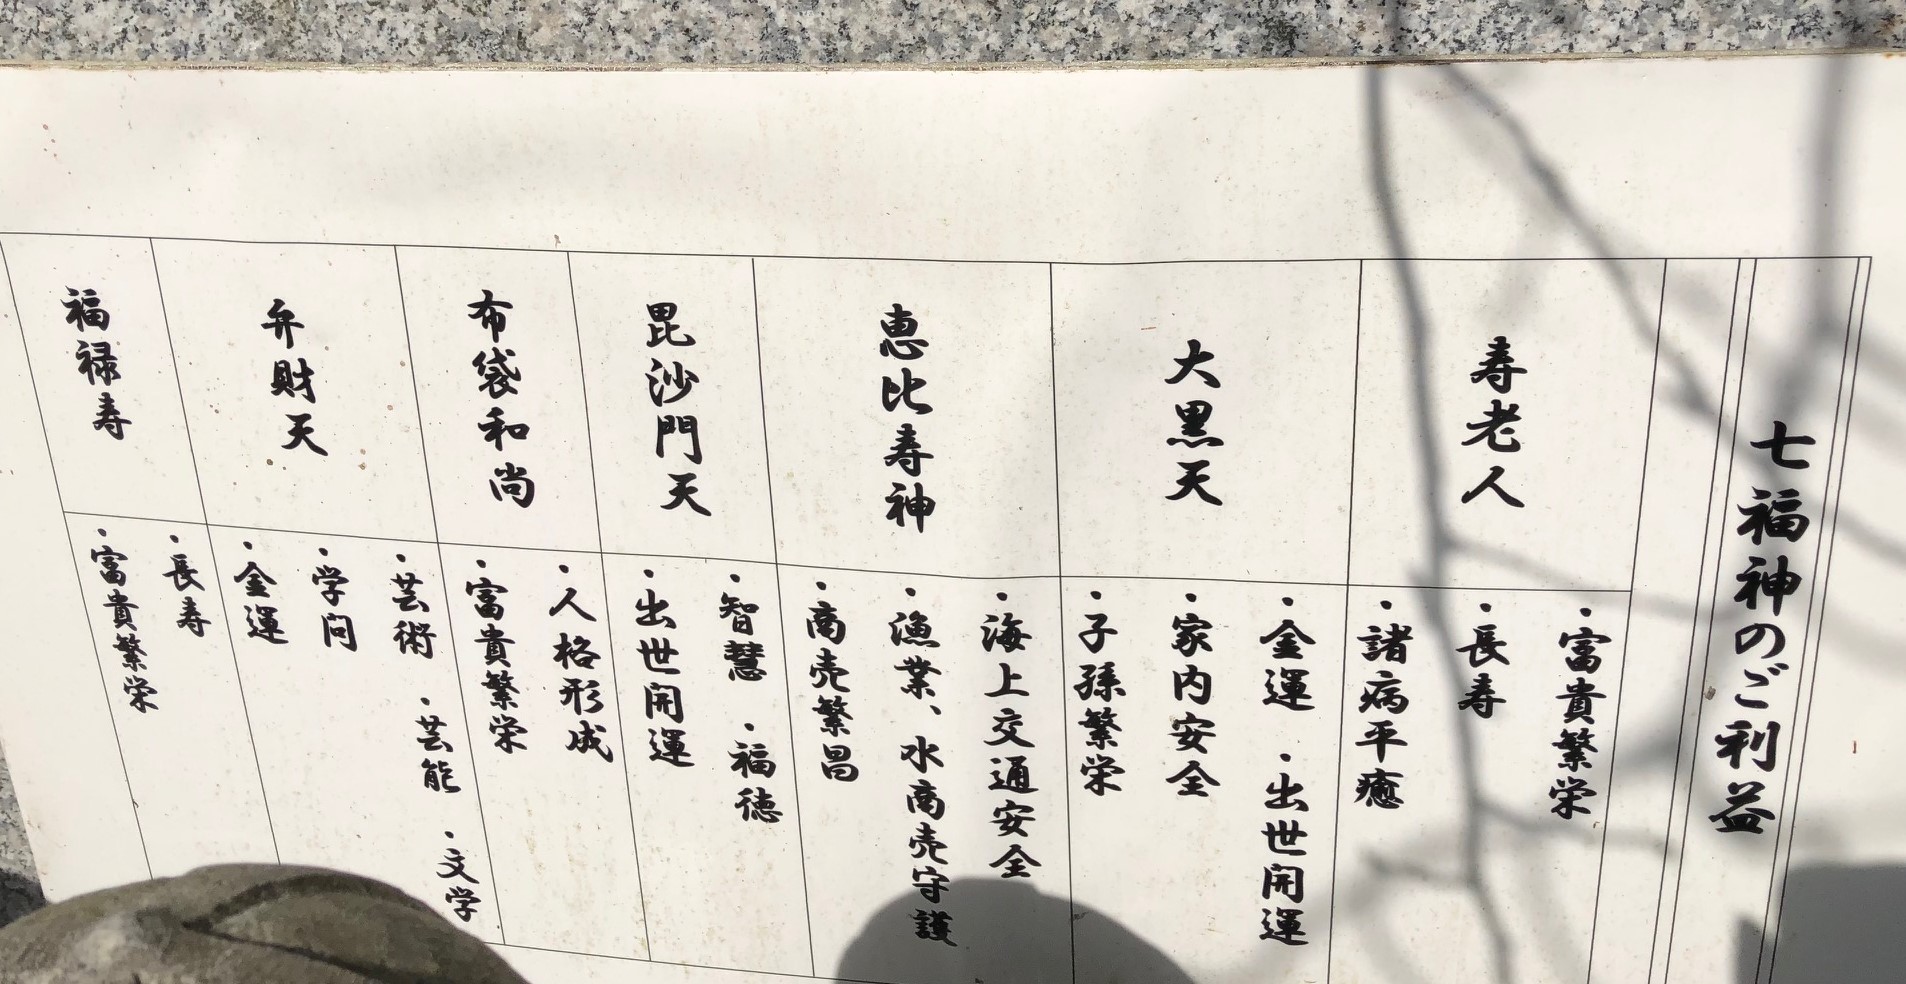 七福神のご利益
寿老人
・富貴繁栄
・長寿
・諸病平癒
大黒天
・金運 ・出世開運
・家内安全
・子孫繁栄
恵比寿神
・海上交通安全
・漁業、水商売守護
・商売繁昌
毘沙門天
・智慧 ・福徳
・出世開運
布袋和尚
・人格形成
・富貴繁栄
弁財天
・芸術 ・芸能 ・文学
・学問
・金運
福禄寿
・長寿
・富貴繁栄